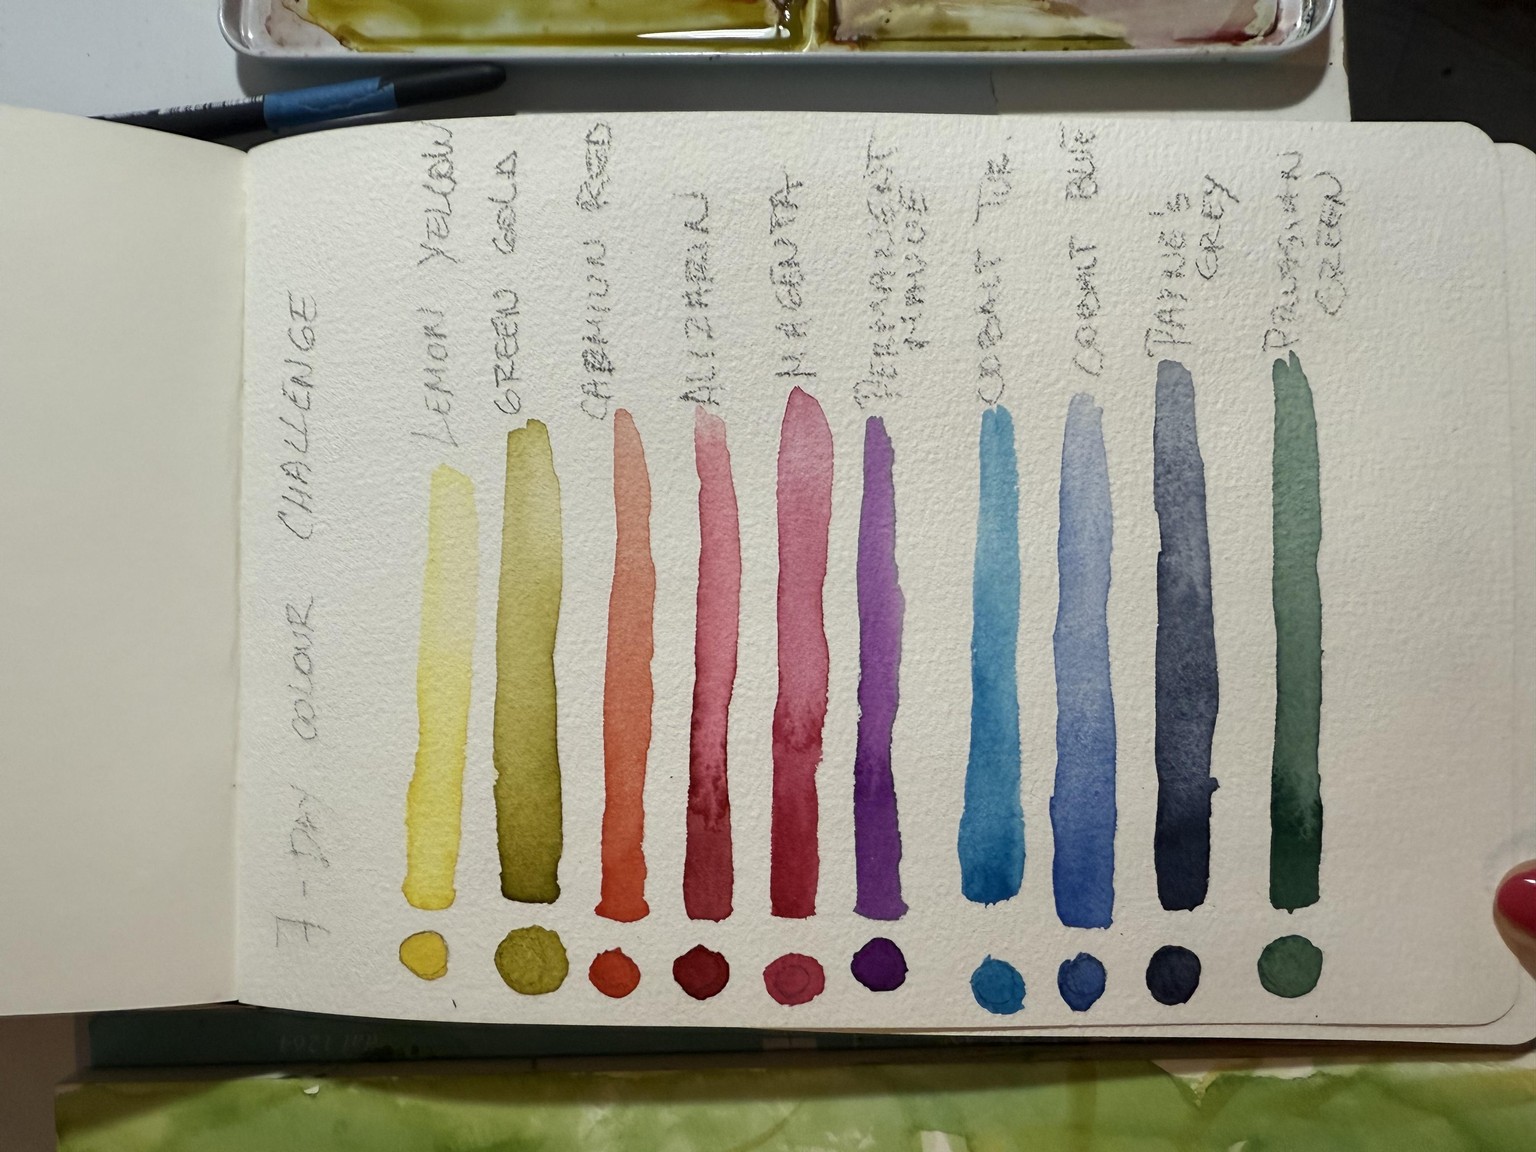 7-DAY COLOUR CHALLENGE
LEMON YELLOW
GREEN GOLD
CADMIUM RED
ALIZARIN
MAGENTA
PERMANENT
MAUVE
COBALT TUR.
COBALT BLUE
PAYNE'S
GREY
PRUSSIAN
GREEN